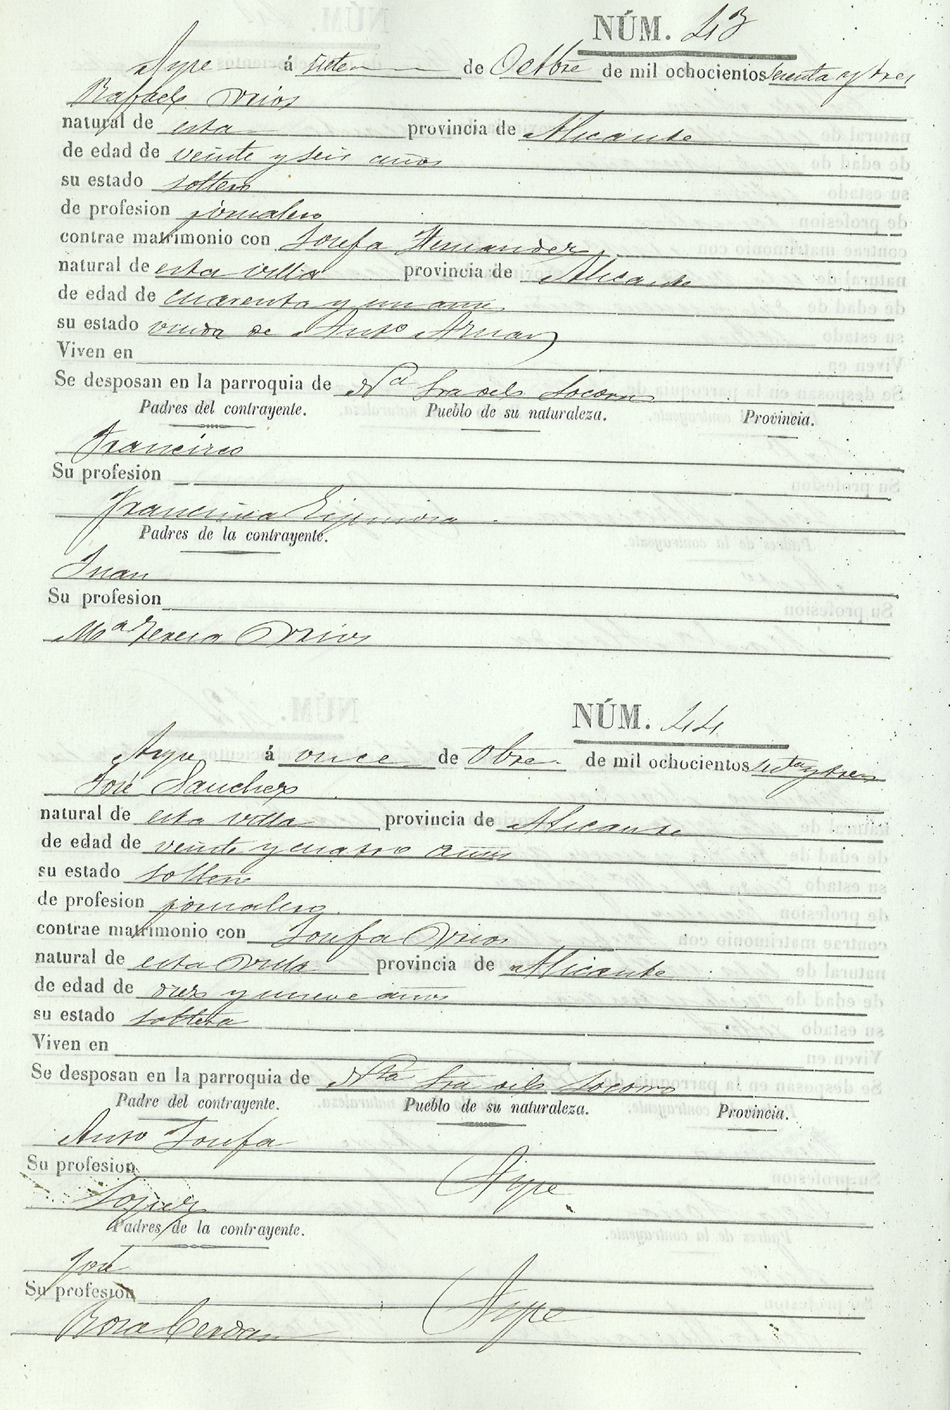 NÚM. 43
Aspe á siete de Octbre de mil ochocientos setenta y tres
Rafael Mrios
natural de esta provincia de Alicante
de edad de veinte y seis años
su estado soltero
de profesion jornalero
contrae matrimonio con Josefa Hernandez
natural de esta villa provincia de Alicante
de edad de cuarenta y un años
su estado viuda de Antº
Viven en
Se desposan en la parroquia de Nª Sra del Socorro
Padres del contrayente. Pueblo de su naturaleza. Provincia.
Francisco
Su profesion
Francisca Espinosa
Padres de la contrayente.
Juan
Su profesion
Mª Teresa Mrios
NÚM. 44
Aspe á once de Obre de mil ochocientos setta y tres
José Sanchez
natural de esta villa provincia de Alicante
de edad de veinte y cuatro años
su estado soltero
de profesion jornalero
contrae matrimonio con Josefa Mrios
natural de esta villa provincia de Alicante
de edad de diez y nueve años
su estado soltera
Viven en
Se desposan en la parroquia de Ntra Sra del Socorro
Padre del contrayente. Pueblo de su naturaleza. Provincia.
Antº Josefa
Su profesion Aspe
Lopez
Padres de la contrayente.
José
Su profesion Aspe
Rosa Cerdan